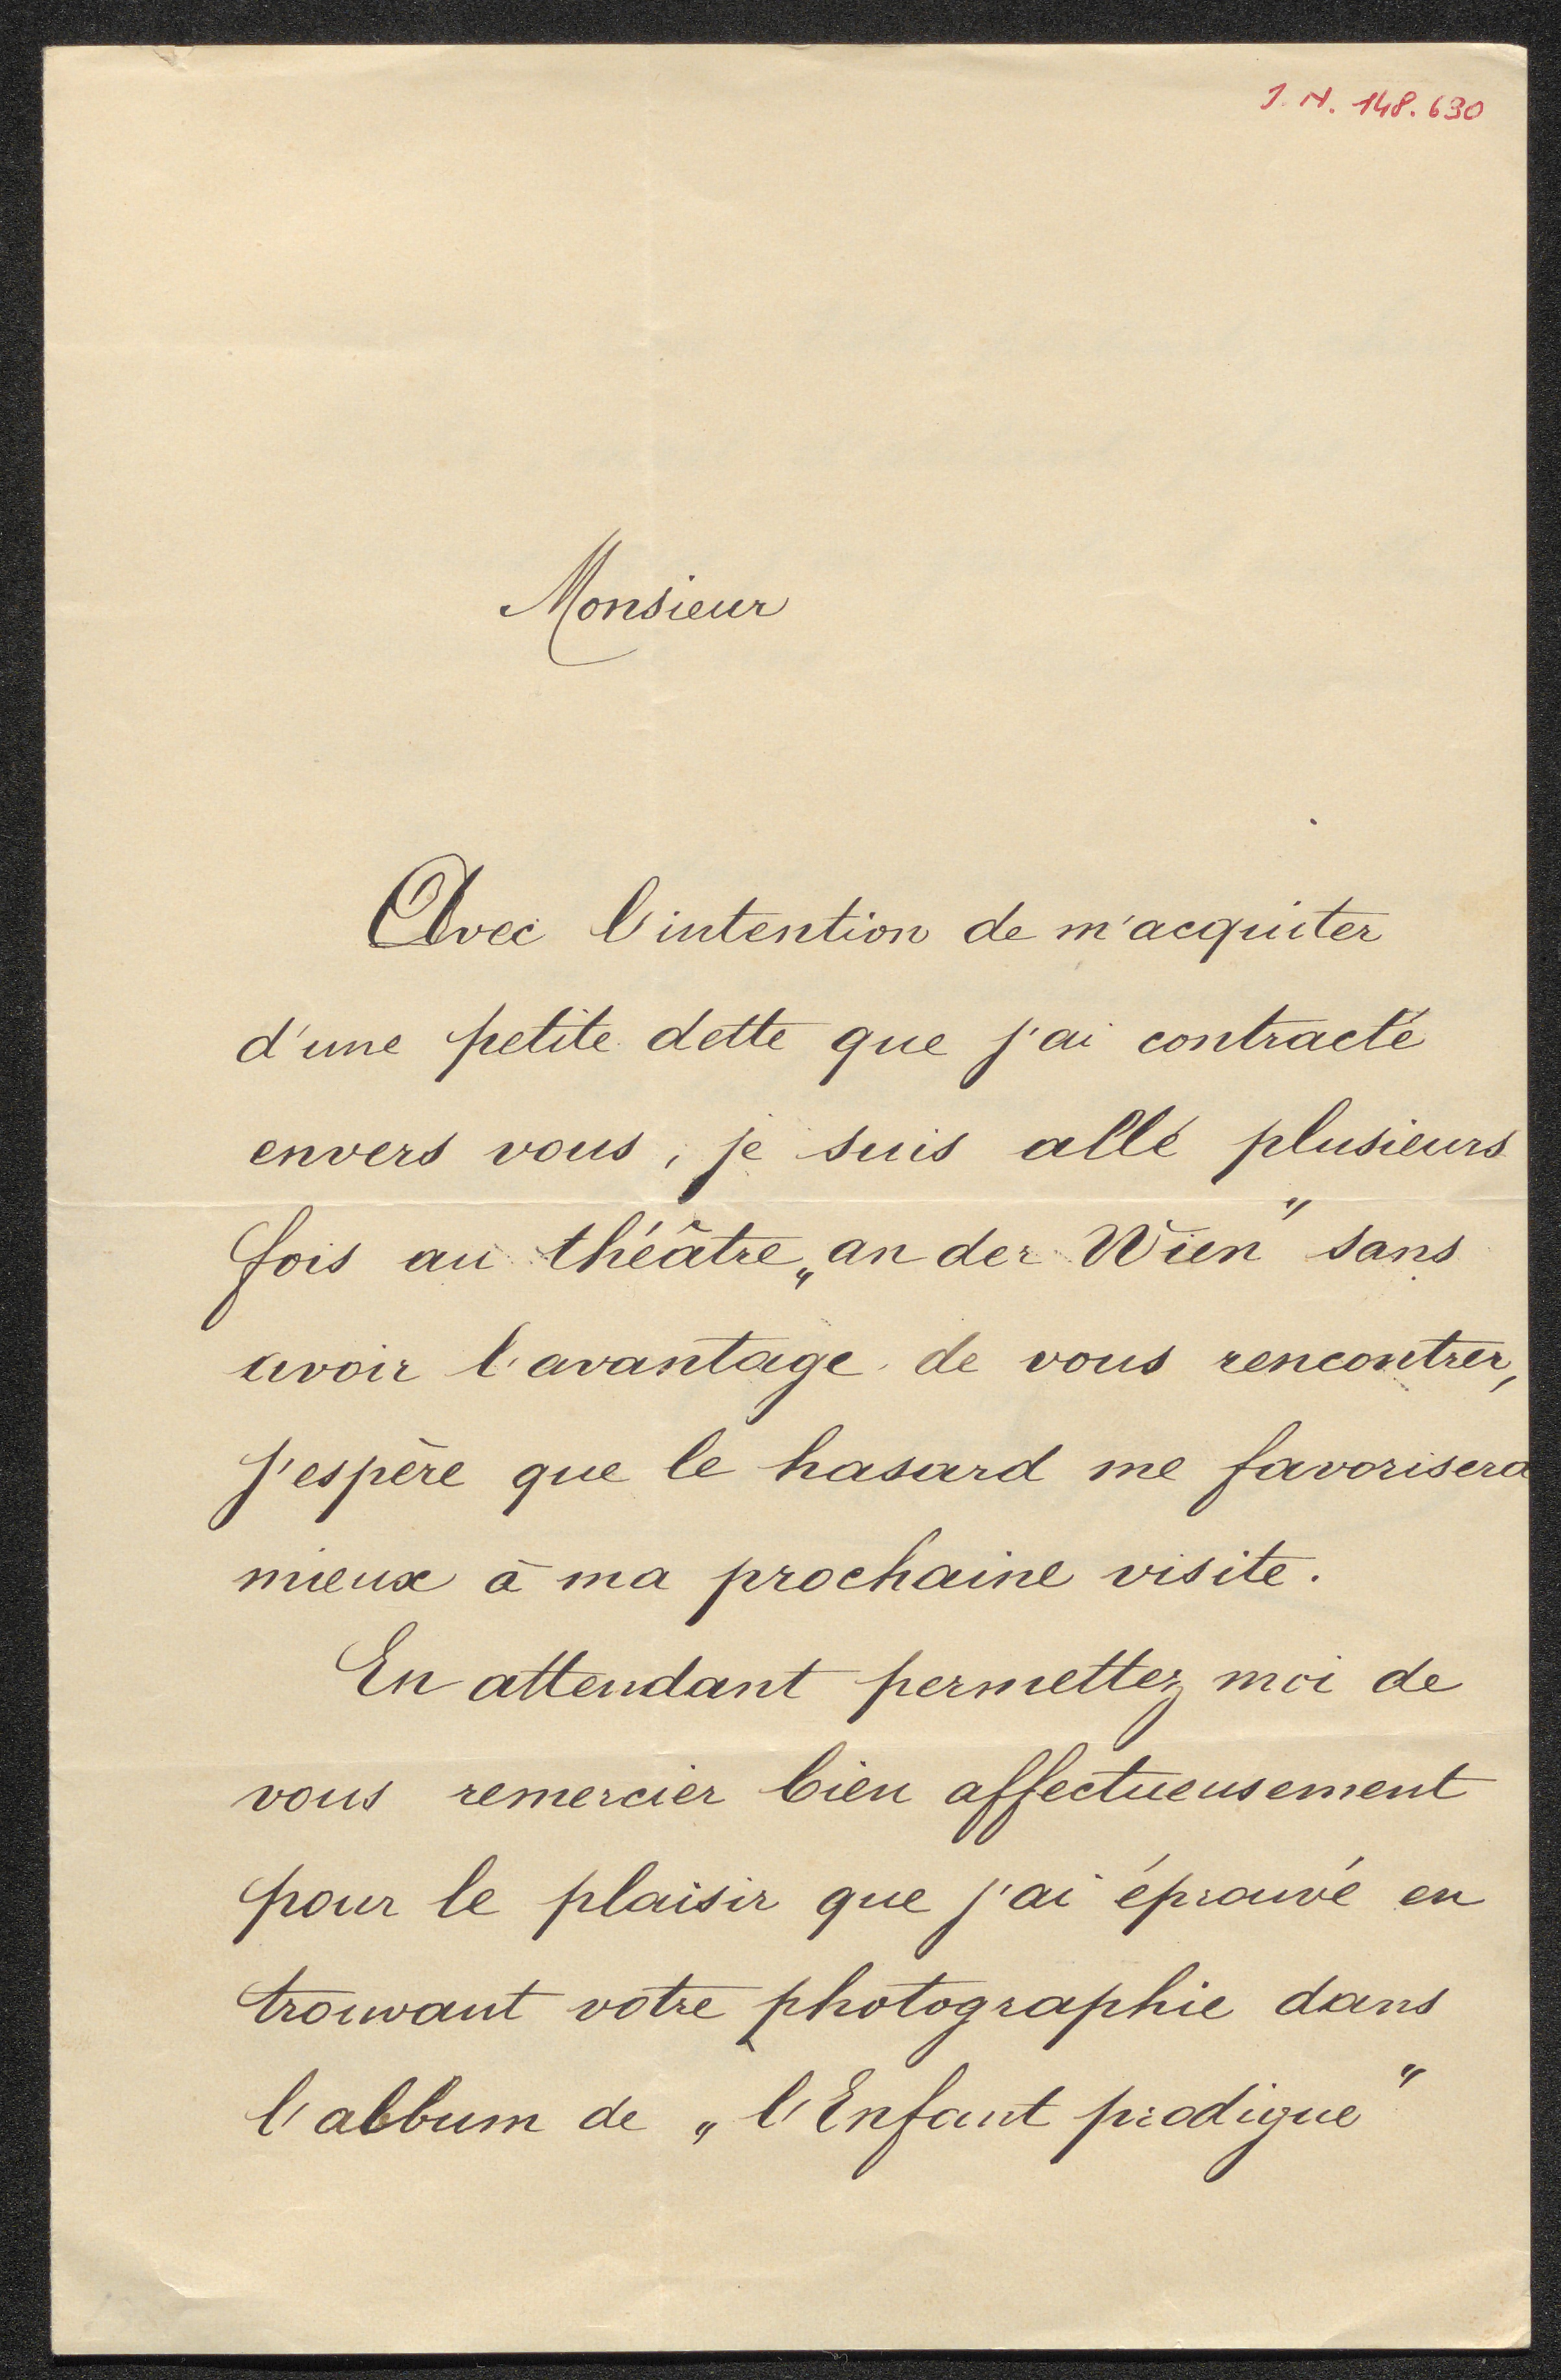 J. N. 148.630
Monsieur
Avec l'intention de m'acquiter
d'une petite dette que j'ai contracté
envers vous, je suis allé plusieurs
fois au théâtre „an der Wien" sans
avoir l'avantage de vous rencontrer,
j'espère que le hasard me favorisera
mieux à ma prochaine visite.
En attendant permettez moi de
vous remercier bien affectueusement
pour le plaisir que j'ai éprouvé en
trouvant votre photographie dans
l'album de „l'Enfant prodigue"